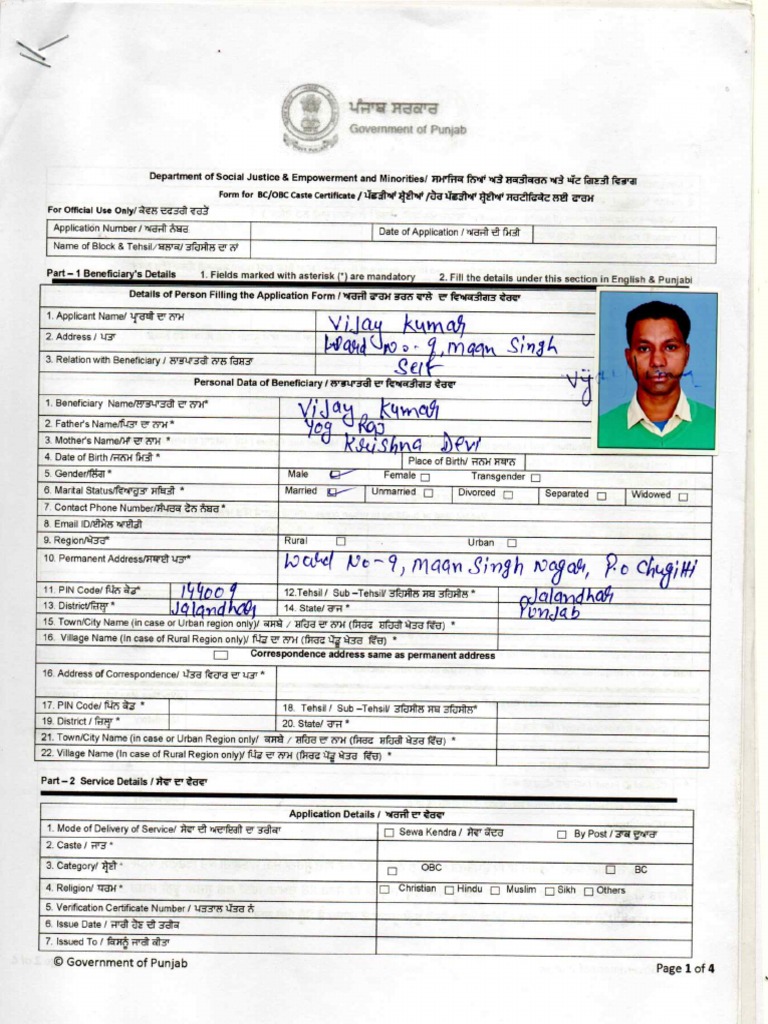 ਪੰਜਾਬ ਸਰਕਾਰ
Government of Punjab
Department of Social Justice & Empowerment and Minorities/ ਸਮਾਜਿਕ ਨਿਆਂ ਅਤੇ ਸ਼ਕਤੀਕਰਨ ਅਤੇ ਘੱਟ ਗਿਣਤੀ ਵਿਭਾਗ
Form for BC/OBC Caste Certificate / ਪੱਛੜੀਆਂ ਸ਼੍ਰੇਣੀਆਂ /ਹੋਰ ਪੱਛੜੀਆਂ ਸ਼੍ਰੇਣੀਆਂ ਸਰਟੀਫਿਕੇਟ ਲਈ ਫਾਰਮ
For Official Use Only/ ਕੇਵਲ ਦਫਤਰੀ ਵਰਤੋਂ
Application Number / ਅਰਜੀ ਨੰਬਰ Date of Application / ਅਰਜੀ ਦੀ ਮਿਤੀ
Name of Block & Tehsil/ ਬਲਾਕ/ ਤਹਿਸੀਲ ਦਾ ਨਾਂ
Part – 1 Beneficiary's Details 1. Fields marked with asterisk (*) are mandatory 2. Fill the details under this section in English & Punjabi
Details of Person Filling the Application Form / ਅਰਜੀ ਫਾਰਮ ਭਰਨ ਵਾਲੇ ਦਾ ਵਿਅਕਤੀਗਤ ਵੇਰਵਾ
1. Applicant Name/ ਪ੍ਰਾਰਥੀ ਦਾ ਨਾਮ Vijay Kumar
2. Address / ਪਤਾ Ward No-9, Maan Singh
3. Relation with Beneficiary / ਲਾਭਪਾਤਰੀ ਨਾਲ ਰਿਸ਼ਤਾ Self
Personal Data of Beneficiary / ਲਾਭਪਾਤਰੀ ਦਾ ਵਿਅਕਤੀਗਤ ਵੇਰਵਾ
1. Beneficiary Name/ਲਾਭਪਾਤਰੀ ਦਾ ਨਾਮ* Vijay Kumar
2. Father's Name/ਪਿਤਾ ਦਾ ਨਾਮ * Yog Raj
3. Mother's Name/ਮਾਂ ਦਾ ਨਾਮ * Krishna Devi
4. Date of Birth /ਜਨਮ ਮਿਤੀ * Place of Birth/ ਜਨਮ ਸਥਾਨ
5. Gender/ਲਿੰਗ * Male Female Transgender
6. Marital Status/ਵਿਆਹੁਤਾ ਸਥਿਤੀ * Married Unmarried Divorced Separated Widowed
7. Contact Phone Number/ਸੰਪਰਕ ਫੋਨ ਨੰਬਰ *
8. Email ID/ਈਮੇਲ ਆਈਡੀ
9. Region/ਖੇਤਰ* Rural Urban
10. Permanent Address/ਸਥਾਈ ਪਤਾ* Ward No-9, Maan Singh Nagar, P.o Chugitti
11. PIN Code/ ਪਿੰਨ ਕੋਡ* 144009 12.Tehsil / Sub –Tehsil/ ਤਹਿਸੀਲ ਸਬ ਤਹਿਸੀਲ* Jalandhar
13. District/ਜ਼ਿਲ੍ਹਾ * Jalandhar 14. State/ ਰਾਜ * Punjab
15. Town/City Name (in case or Urban region only)/ ਕਸਬੇ / ਸ਼ਹਿਰ ਦਾ ਨਾਮ (ਸਿਰਫ ਸ਼ਹਿਰੀ ਖੇਤਰ ਵਿੱਚ) *
16. Village Name (In case of Rural Region only)/ ਪਿੰਡ ਦਾ ਨਾਮ (ਸਿਰਫ ਪੇਂਡੂ ਖੇਤਰ ਵਿੱਚ) *
Correspondence address same as permanent address
16. Address of Correspondence/ ਪੱਤਰ ਵਿਹਾਰ ਦਾ ਪਤਾ *
17. PIN Code/ ਪਿੰਨ ਕੋਡ * 18. Tehsil / Sub –Tehsil/ ਤਹਿਸੀਲ ਸਬ ਤਹਿਸੀਲ*
19. District / ਜ਼ਿਲ੍ਹਾ * 20. State/ ਰਾਜ *
21. Town/City Name (in case or Urban region only/ ਕਸਬੇ / ਸ਼ਹਿਰ ਦਾ ਨਾਮ (ਸਿਰਫ ਸ਼ਹਿਰੀ ਖੇਤਰ ਵਿੱਚ) *
22. Village Name (In case of Rural Region only)/ ਪਿੰਡ ਦਾ ਨਾਮ (ਸਿਰਫ ਪੇਂਡੂ ਖੇਤਰ ਵਿੱਚ) *
Part – 2 Service Details / ਸੇਵਾ ਦਾ ਵੇਰਵਾ
Application Details / ਅਰਜੀ ਦਾ ਵੇਰਵਾ
1. Mode of Delivery of Service/ ਸੇਵਾ ਦੀ ਅਦਾਇਗੀ ਦਾ ਤਰੀਕਾ Sewa Kendra / ਸੇਵਾ ਕੇਂਦਰ By Post / ਡਾਕ ਦੁਆਰਾ
2. Caste / ਜਾਤ *
3. Category/ ਸ਼੍ਰੇਣੀ * OBC BC
4. Religion/ ਧਰਮ * Christian Hindu Muslim Sikh Others
5. Verification Certificate Number / ਪੜਤਾਲ ਪੱਤਰ ਨੰ
6. Issue Date / ਜਾਰੀ ਹੋਣ ਦੀ ਤਰੀਕ
7. Issued To / ਕਿਸਨੂੰ ਜਾਰੀ ਕੀਤਾ
© Government of Punjab Page 1 of 4